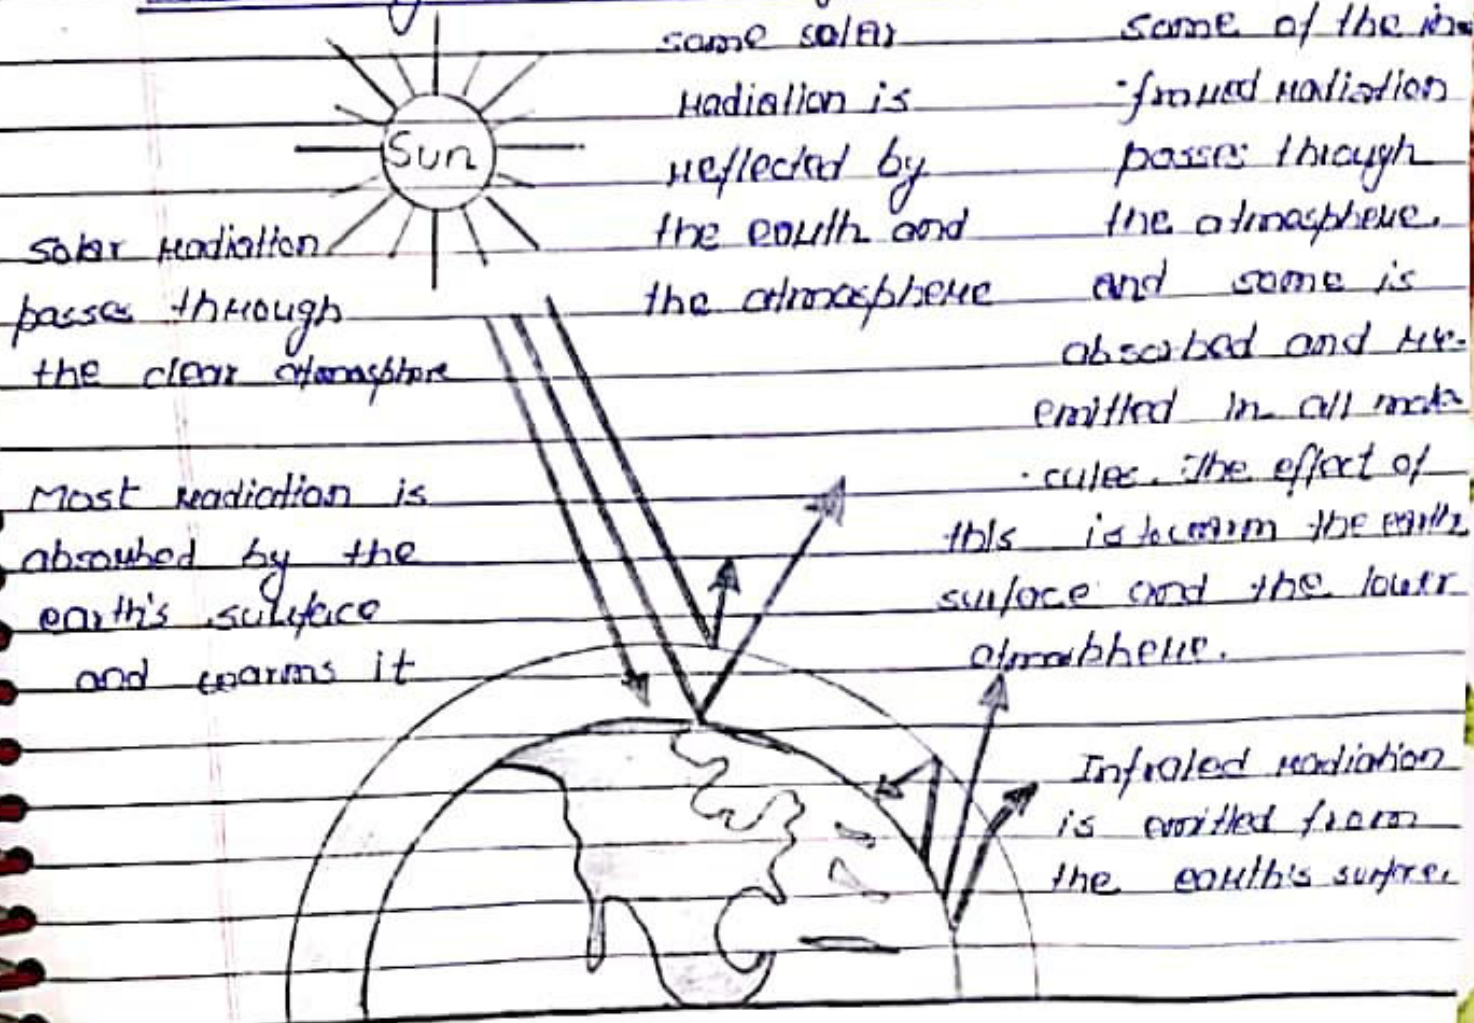 Sun
Solar radiation
passes through
the clear atmosphere
Most radiation is
absorbed by the
earth's surface
and warms it
some solar
radiation is
reflected by
the earth and
the atmosphere
some of the in
-frared radiation
passes through
the atmosphere.
and some is
absorbed and re-
emitted in all mole
-cules. The effect of
this is to warm the earth
surface and the lower
atmosphere.
Infrared radiation
is emitted from
the earth's surface.